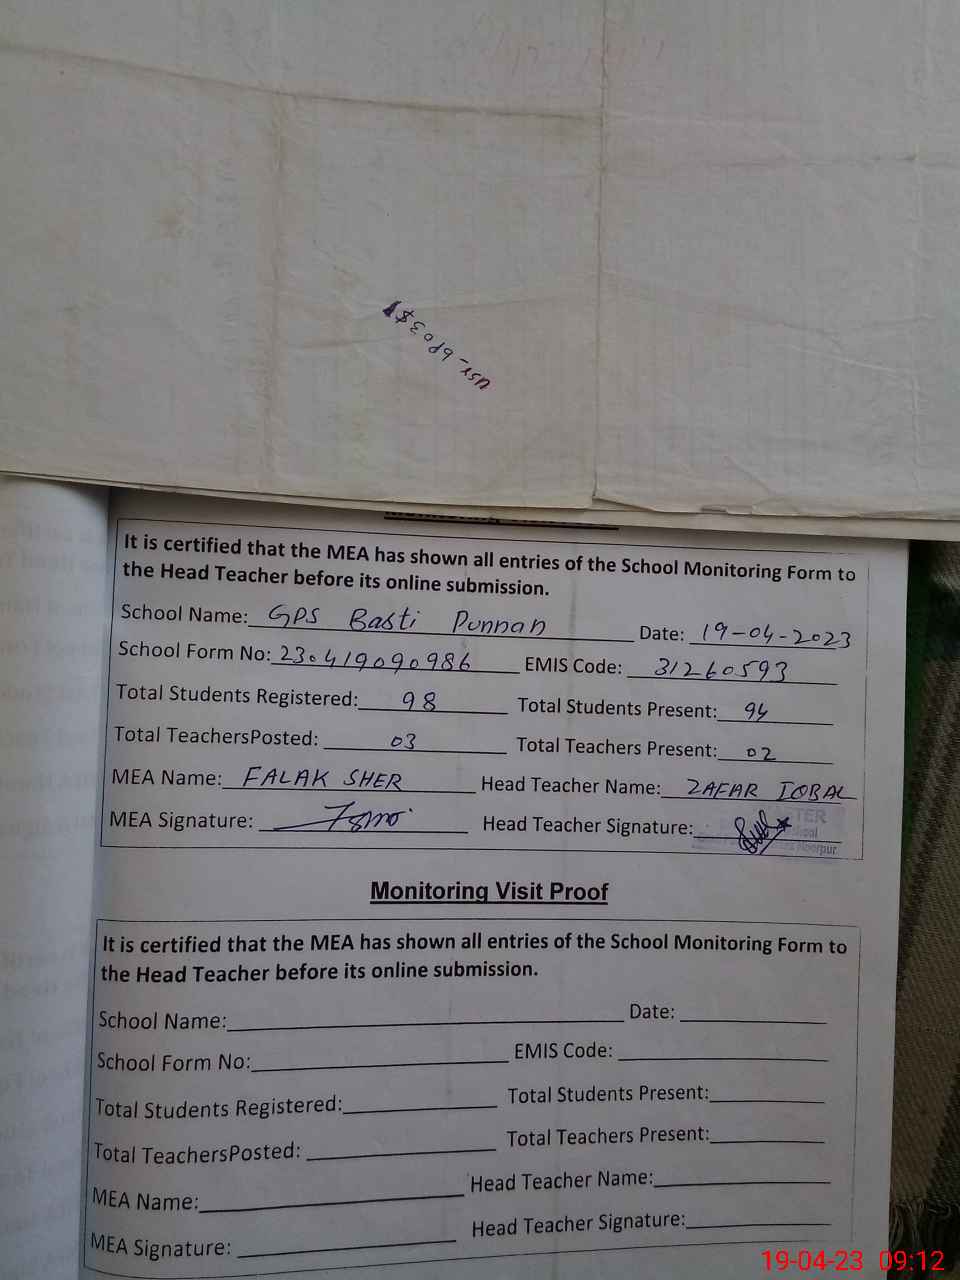 It is certified that the MEA has shown all entries of the School Monitoring Form to
the Head Teacher before its online submission.
School Name: GPS Basti Punnan Date: 19-04-2023
School Form No: 230419090986 EMIS Code: 31260593
Total Students Registered: 98 Total Students Present: 94
Total TeachersPosted: 03 Total Teachers Present: 02
MEA Name: FALAK SHER Head Teacher Name: ZAFAR IQBAL
MEA Signature: Head Teacher Signature:
Monitoring Visit Proof
It is certified that the MEA has shown all entries of the School Monitoring Form to
the Head Teacher before its online submission.
School Name: Date:
School Form No: EMIS Code:
Total Students Registered: Total Students Present:
Total TeachersPosted: Total Teachers Present:
MEA Name: Head Teacher Name:
MEA Signature: Head Teacher Signature:
19-04-23 09:12